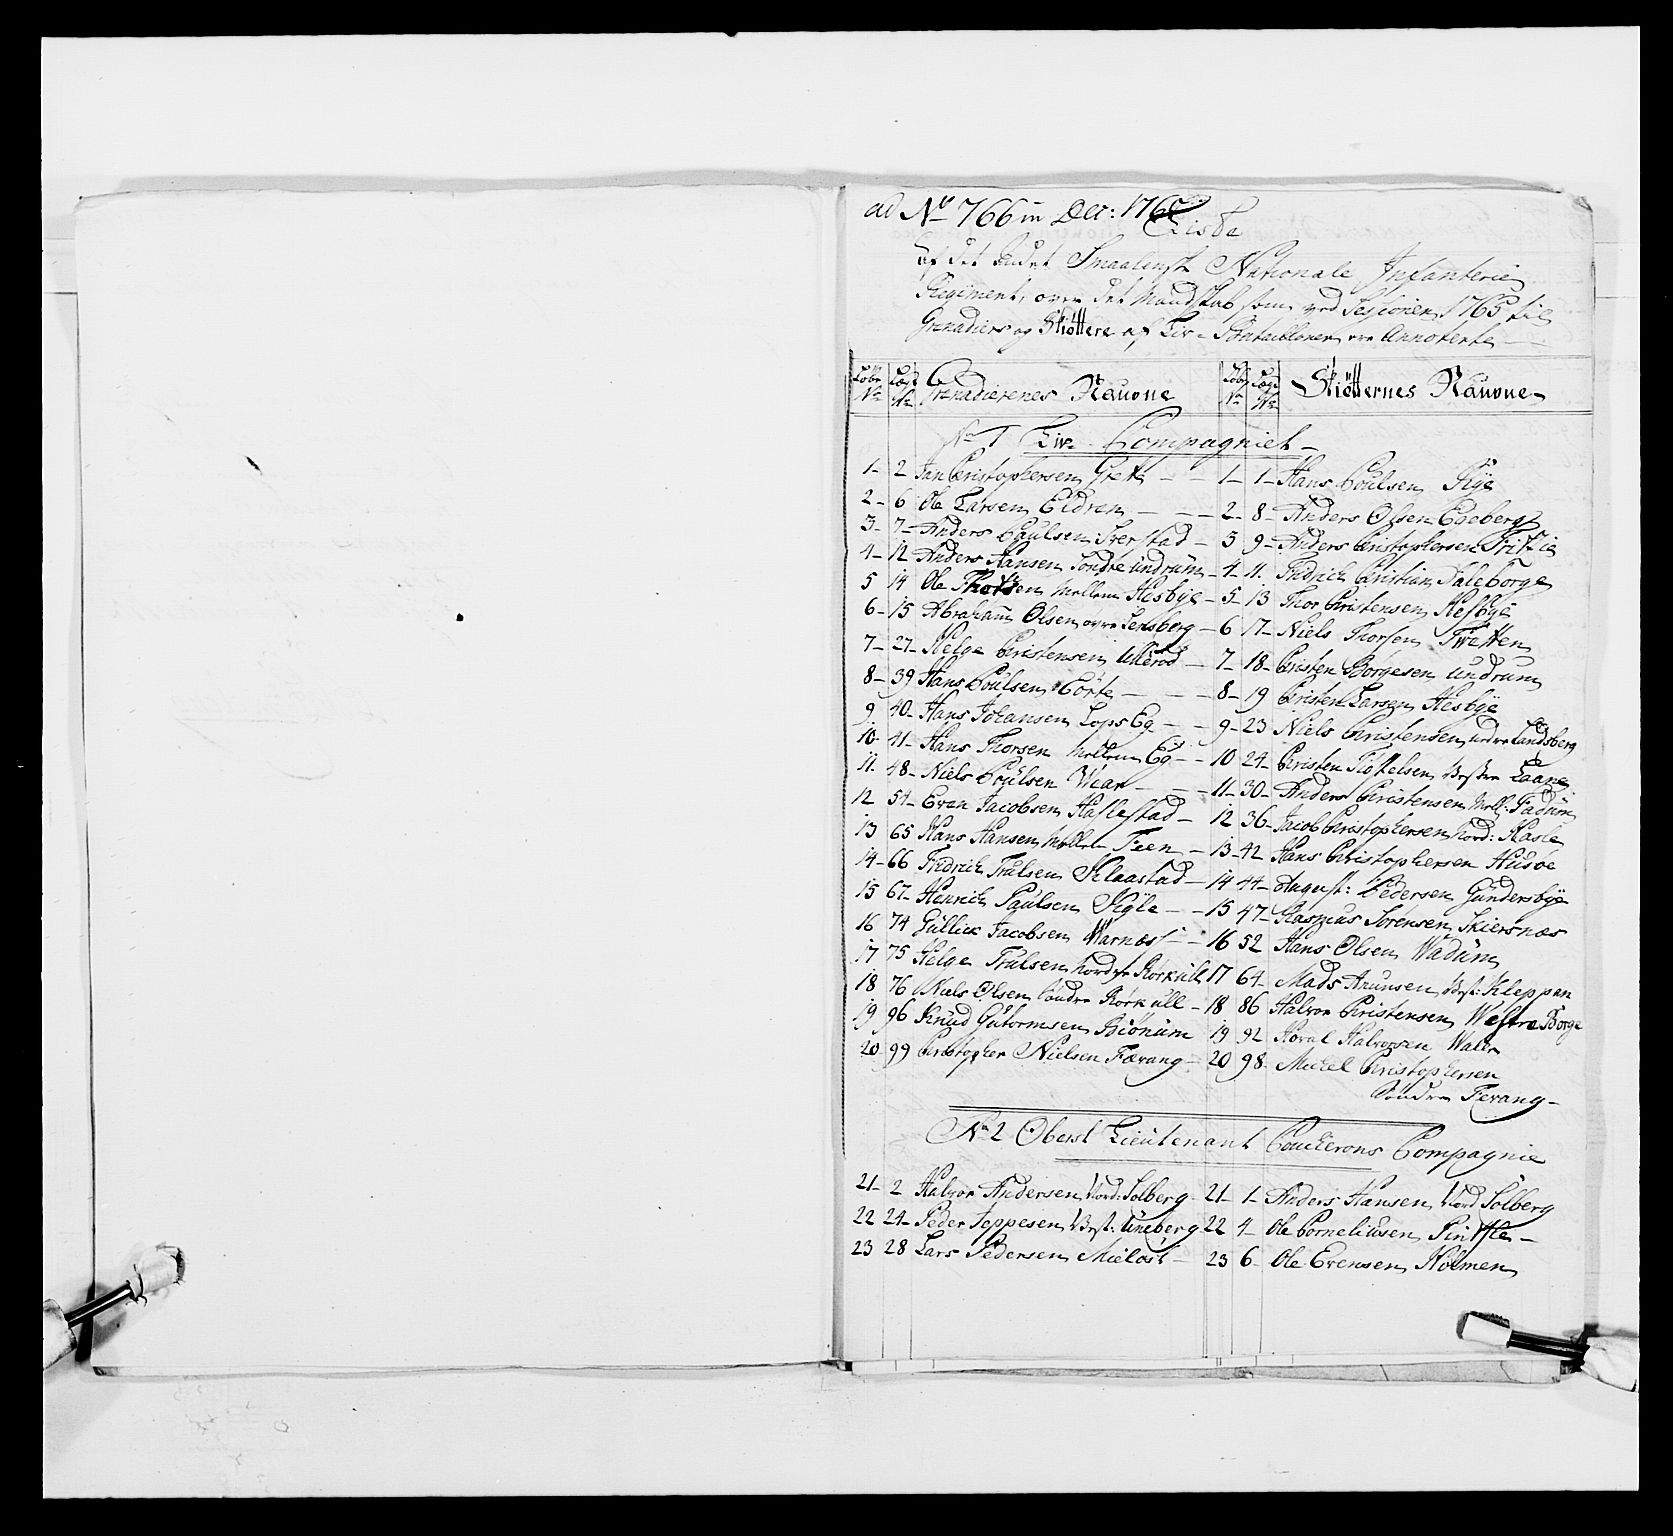 ad No 766 in Decr: 1765
Liste
af det andet Smaalensk Nationale Infanterie
Regiment, over det Mandskab som ved Sessionen 1765 til
Grenadiers og Skiöttere af Liv-Bataillonen ere Annoterte
Löbe No Lægs No Grenadierenes Nauvne Löbe No Lægs No Skiötternes Nauvne
No 1 Liv Compagniet
1 2 Jan Christophersen Greke 1 1 Hans Poulsen Rye
2 6 Ole Larsen Eidren 2 8 Anders Olsen Egeberg
3 7 Anders Paulsen Iverstad 3 9 Anders Christophersen Fritzie
4 12 Anders Hansen Söndre Undrum 4 11 Fridrich Christian Faleborge
5 14 Ole Thorsen Mellem Hesbye 5 13 Thor Christensen Hesbye
6 15 Abraham Olsen övre Lensberg 6 17 Niels Thorsen Twetten
7 27 Helge Christensen Ullerod 7 18 Christen Borgesen Undrum
8 39 Hans Poulsen Börte 8 19 Christen Larsen Hesbye
9 40 Hans Johansen Lops Eg 9 23 Niels Christensen nedre Landsberg
10 41 Hans Thorsen Mellem Eg 10 24 Christen Tostelsen Vestre Laane
11 48 Niels Poulsen Wear 11 30 Anders Christensen Mell: Fadum
12 54 Even Jacobsen Haslestad 12 36 Jacob Christophersen Nord: Hasle
13 65 Hans Hansen Mellem Feen 13 42 Hans Christophersen Husöe
14 66 Fridrich Trulsen Klaastad 14 44 August: Pedersen Gundersbye
15 67 Henrich Paulsen Rigle 15 47 Rasmus Sörensen Skiersnæs
16 74 Gullick Jacobsen Warnæss 16 52 Hans Olsen Wadum
17 75 Helge Trulsen Nordre Rörkull 17 64 Mads Anunsen Vest: Kleppan
18 76 Niels Olsen Söndre Rörkull 18 86 Halvor Christensen Westre Borge
19 96 Knud Gutormsen Biönum 19 92 Horal Halvorsen Waler
20 99 Christopher Nielsen Færang 20 98 Michel Christophersen
Söndre Ferang
No 2 Oberst Lieutenant Coucherons Compagnie
21 2 Halvor Andersen Nord: Solberg 21 1 Anders Hansen Nord Solberg
22 24 Peder Jeppesen Vest: Uneberg 22 4 Ole Corneliusen Pintsle
23 28 Lars Pedersen Mielöst 23 6 Ole Evensen Holmen